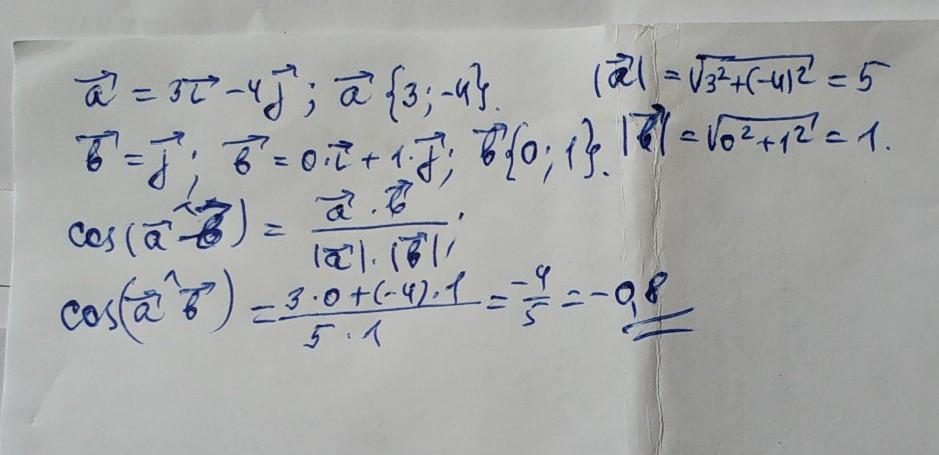 a⃗ = 3i⃗ - 4j⃗; a⃗ {3; -4}. |a⃗| = √(3² + (-4)²) = 5
b⃗ = j⃗; b⃗ = 0·i⃗ + 1·j⃗; b⃗ {0; 1}. |b⃗| = √(0² + 1²) = 1.
cos(a⃗ ^ b⃗) = (a⃗ · b⃗) / (|a⃗| · |b⃗|);
cos(a⃗ ^ b⃗) = (3·0 + (-4)·1) / (5·1) = -4/5 = -0,8